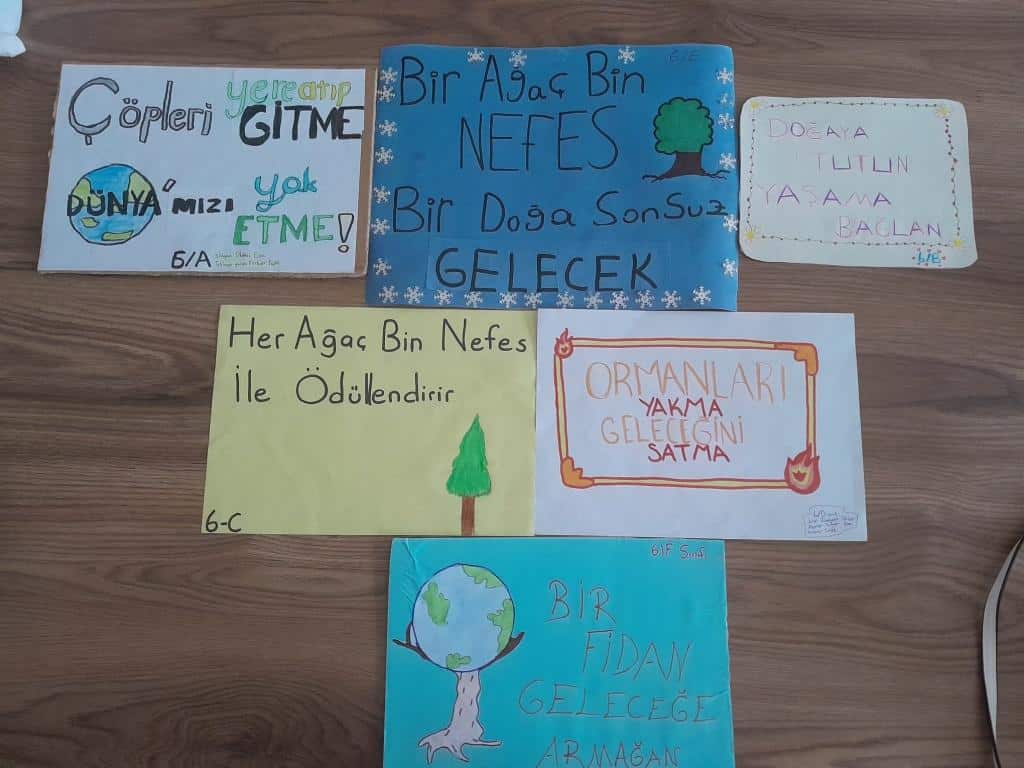 Çöpleri yere atıp
GİTME
DÜNYA'MIZI yok
ETME!
6/A
6/E
Bir Ağaç Bin
NEFES
Bir Doğa Sonsuz
GELECEK
DOĞAYA
TUTUN
YAŞAMA
BAĞLAN
Her Ağaç Bin Nefes
İle Ödüllendirir
6-C
ORMANLARI
YAKMA
GELECEĞİNİ
SATMA
6/F Sınıfı
BİR
FİDAN
GELECEĞE
ARMAĞAN